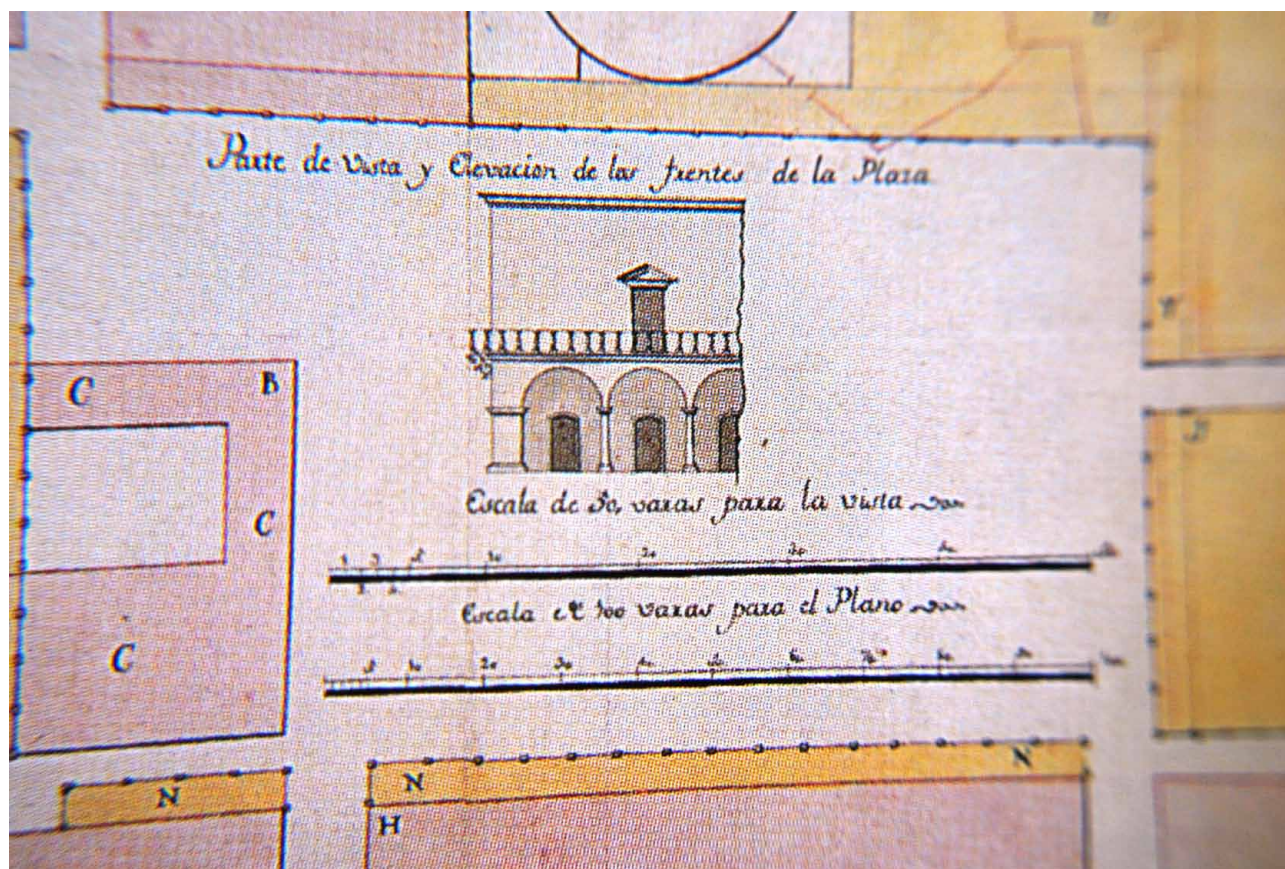 Parte de Vista y Elevacion de las frentes de la Plaza
C
B
Escala de 50, varas para la vista
C
1 3 5 10 20 30 40 50
2 4
Escala de 100 varas para el Plano
C
5 10 20 30 40 50 60 70 80 90 100
N
N
N
H